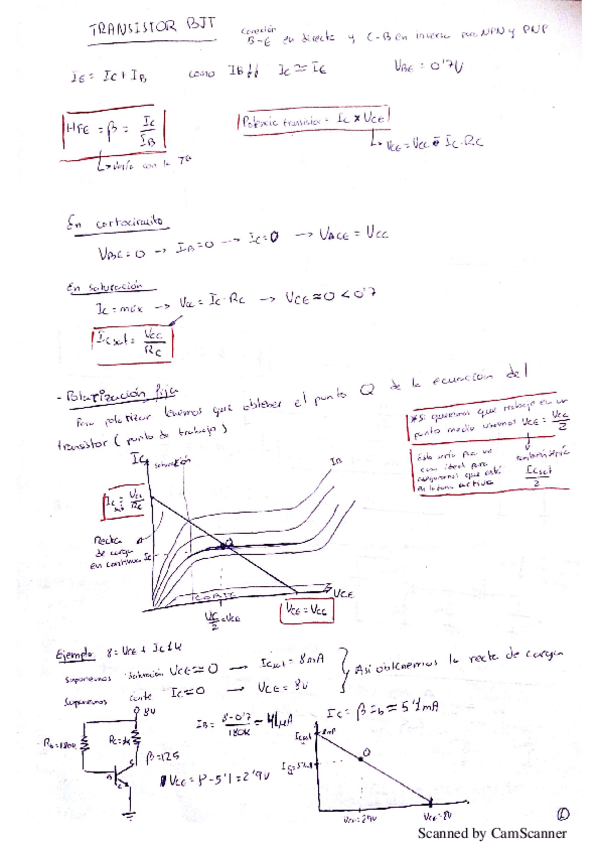 TRANSISTOR BJT
B-E en directa y C-B en inversa para NPN y PNP
IE = IC + IB como IB↓↓ IC ≃ IE VBE = 0'7V
HFE = β = IC/IB
Potencia transistor = IC * VCE
→ varía con la Tª
→ VCE = VCC - IC·RC
En cortocircuito
VBC = 0 → IB = 0 → IC = 0 → VCE = VCC
En saturación
IC = máx → VCC = IC·RC → VCE ≈ 0 < 0'7
IC sat = VCC/RC
- Polarización fija
Para polarizar tenemos que obtener el punto Q de la ecuación del
transistor (punto de trabajo)
*Si queremos que trabaje en un
punto medio usamos VCE = VCC/2
Esto sería para un
caso ideal para
asegurarnos que esté
en la zona activa
IC sat/2
IC saturación IB
IC sat = VCC/RC
Recta
de carga
en continua IC
Q
CORTE VCE
VCC/2 = VCE
VCE = VCC
Ejemplo 8 = VCE + IC 1k
Suponemos saturación VCE ≃ 0 → IC sat = 8mA
Suponemos corte IC ≃ 0 → VCE = 8V
Así obtenemos la recta de carga
8V
IB = 8-0'7/180k = 41μA
IC = β·Ib = 5'1mA
RB = 180k RC = 1k
β = 125
VCE = 8 - 5'1 = 2'9V
IC sat 8mA
Q
VCE = 2'9V VCE = 8V
Scanned by CamScanner